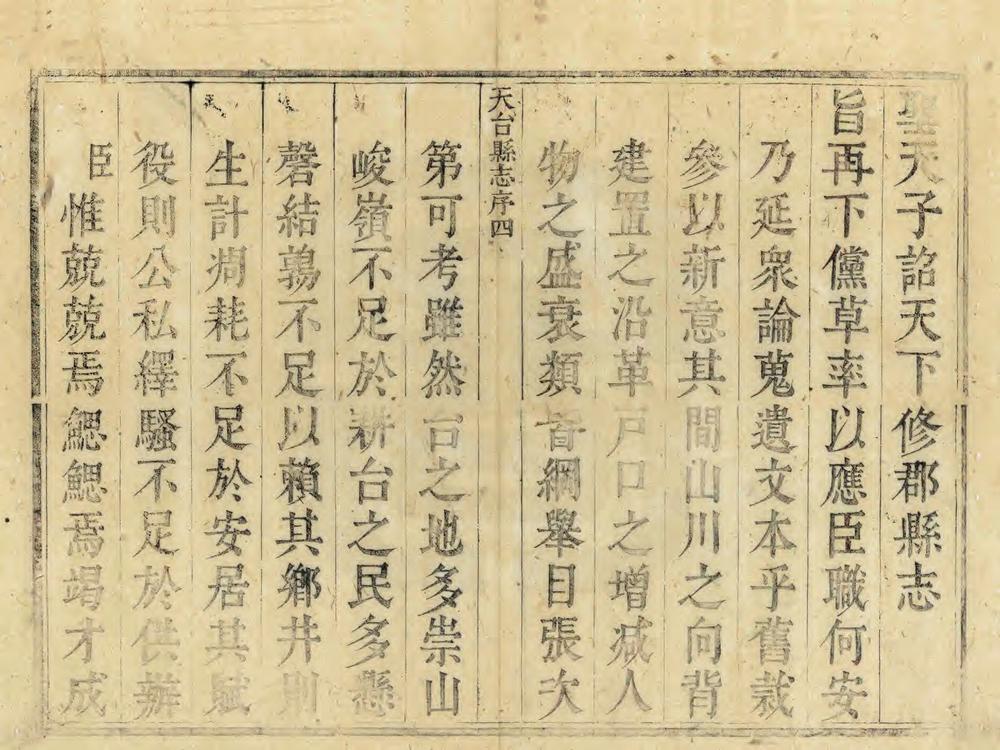 聖天子詔天下修郡縣志
旨再下儻草率以應臣職何安
乃延衆論蒐遺文本乎舊裁
參以新意其間山川之向背
建置之沿革戶口之增減人
物之盛衰類皆綱舉目張次
天台縣志序四
第可考雖然台之地多崇山
峻嶺不足於耕台之民多懸
磬結鶉不足以賴其鄉井則
生計凋耗不足於安居其賦
役則公私繹騷不足於供辦
臣惟兢兢焉鰓鰓焉竭才成